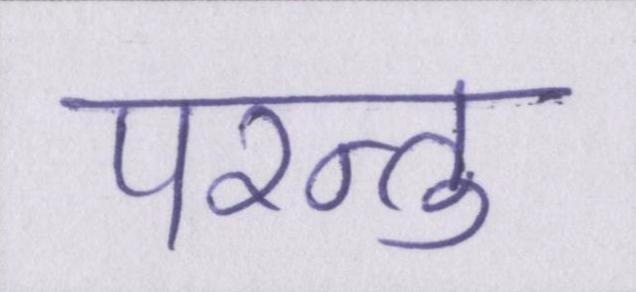 परन्तु